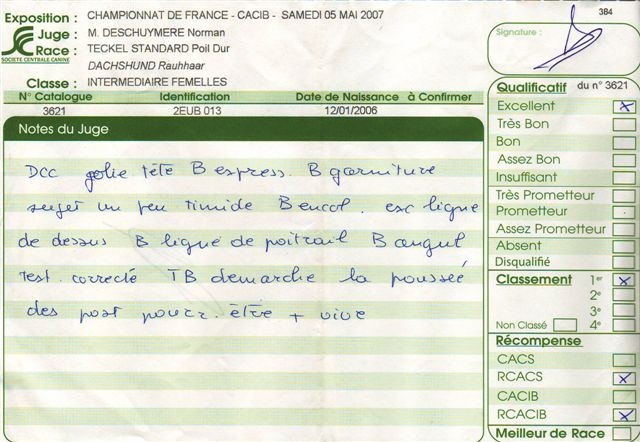 Exposition : CHAMPIONNAT DE FRANCE - CACIB - SAMEDI 05 MAI 2007
384
Juge : M. DESCHUYMERE Norman
Signature :
Race : TECKEL STANDARD Poil Dur
SOCIETE CENTRALE CANINE
DACHSHUND Rauhhaar
Classe : INTERMEDIAIRE FEMELLES
N° Catalogue Identification Date de Naissance à Confirmer
3621 2EUB 013 12/01/2006
Notes du Juge
DCC jolie tête B express. B garniture
sujet un peu timide B encol. exc ligne
de dessus B ligne de poitrail B angul
test. correcte TB demarche la poussée
des post pourr. être + vive
Qualificatif du n° 3621
Excellent x
Très Bon
Bon
Assez Bon
Insuffisant
Très Prometteur
Prometteur
Assez Prometteur
Absent
Disqualifié
Classement 1er x
2e
3e
Non Classé 4e
Récompense
CACS
RCACS x
CACIB
RCACIB x
Meilleur de Race